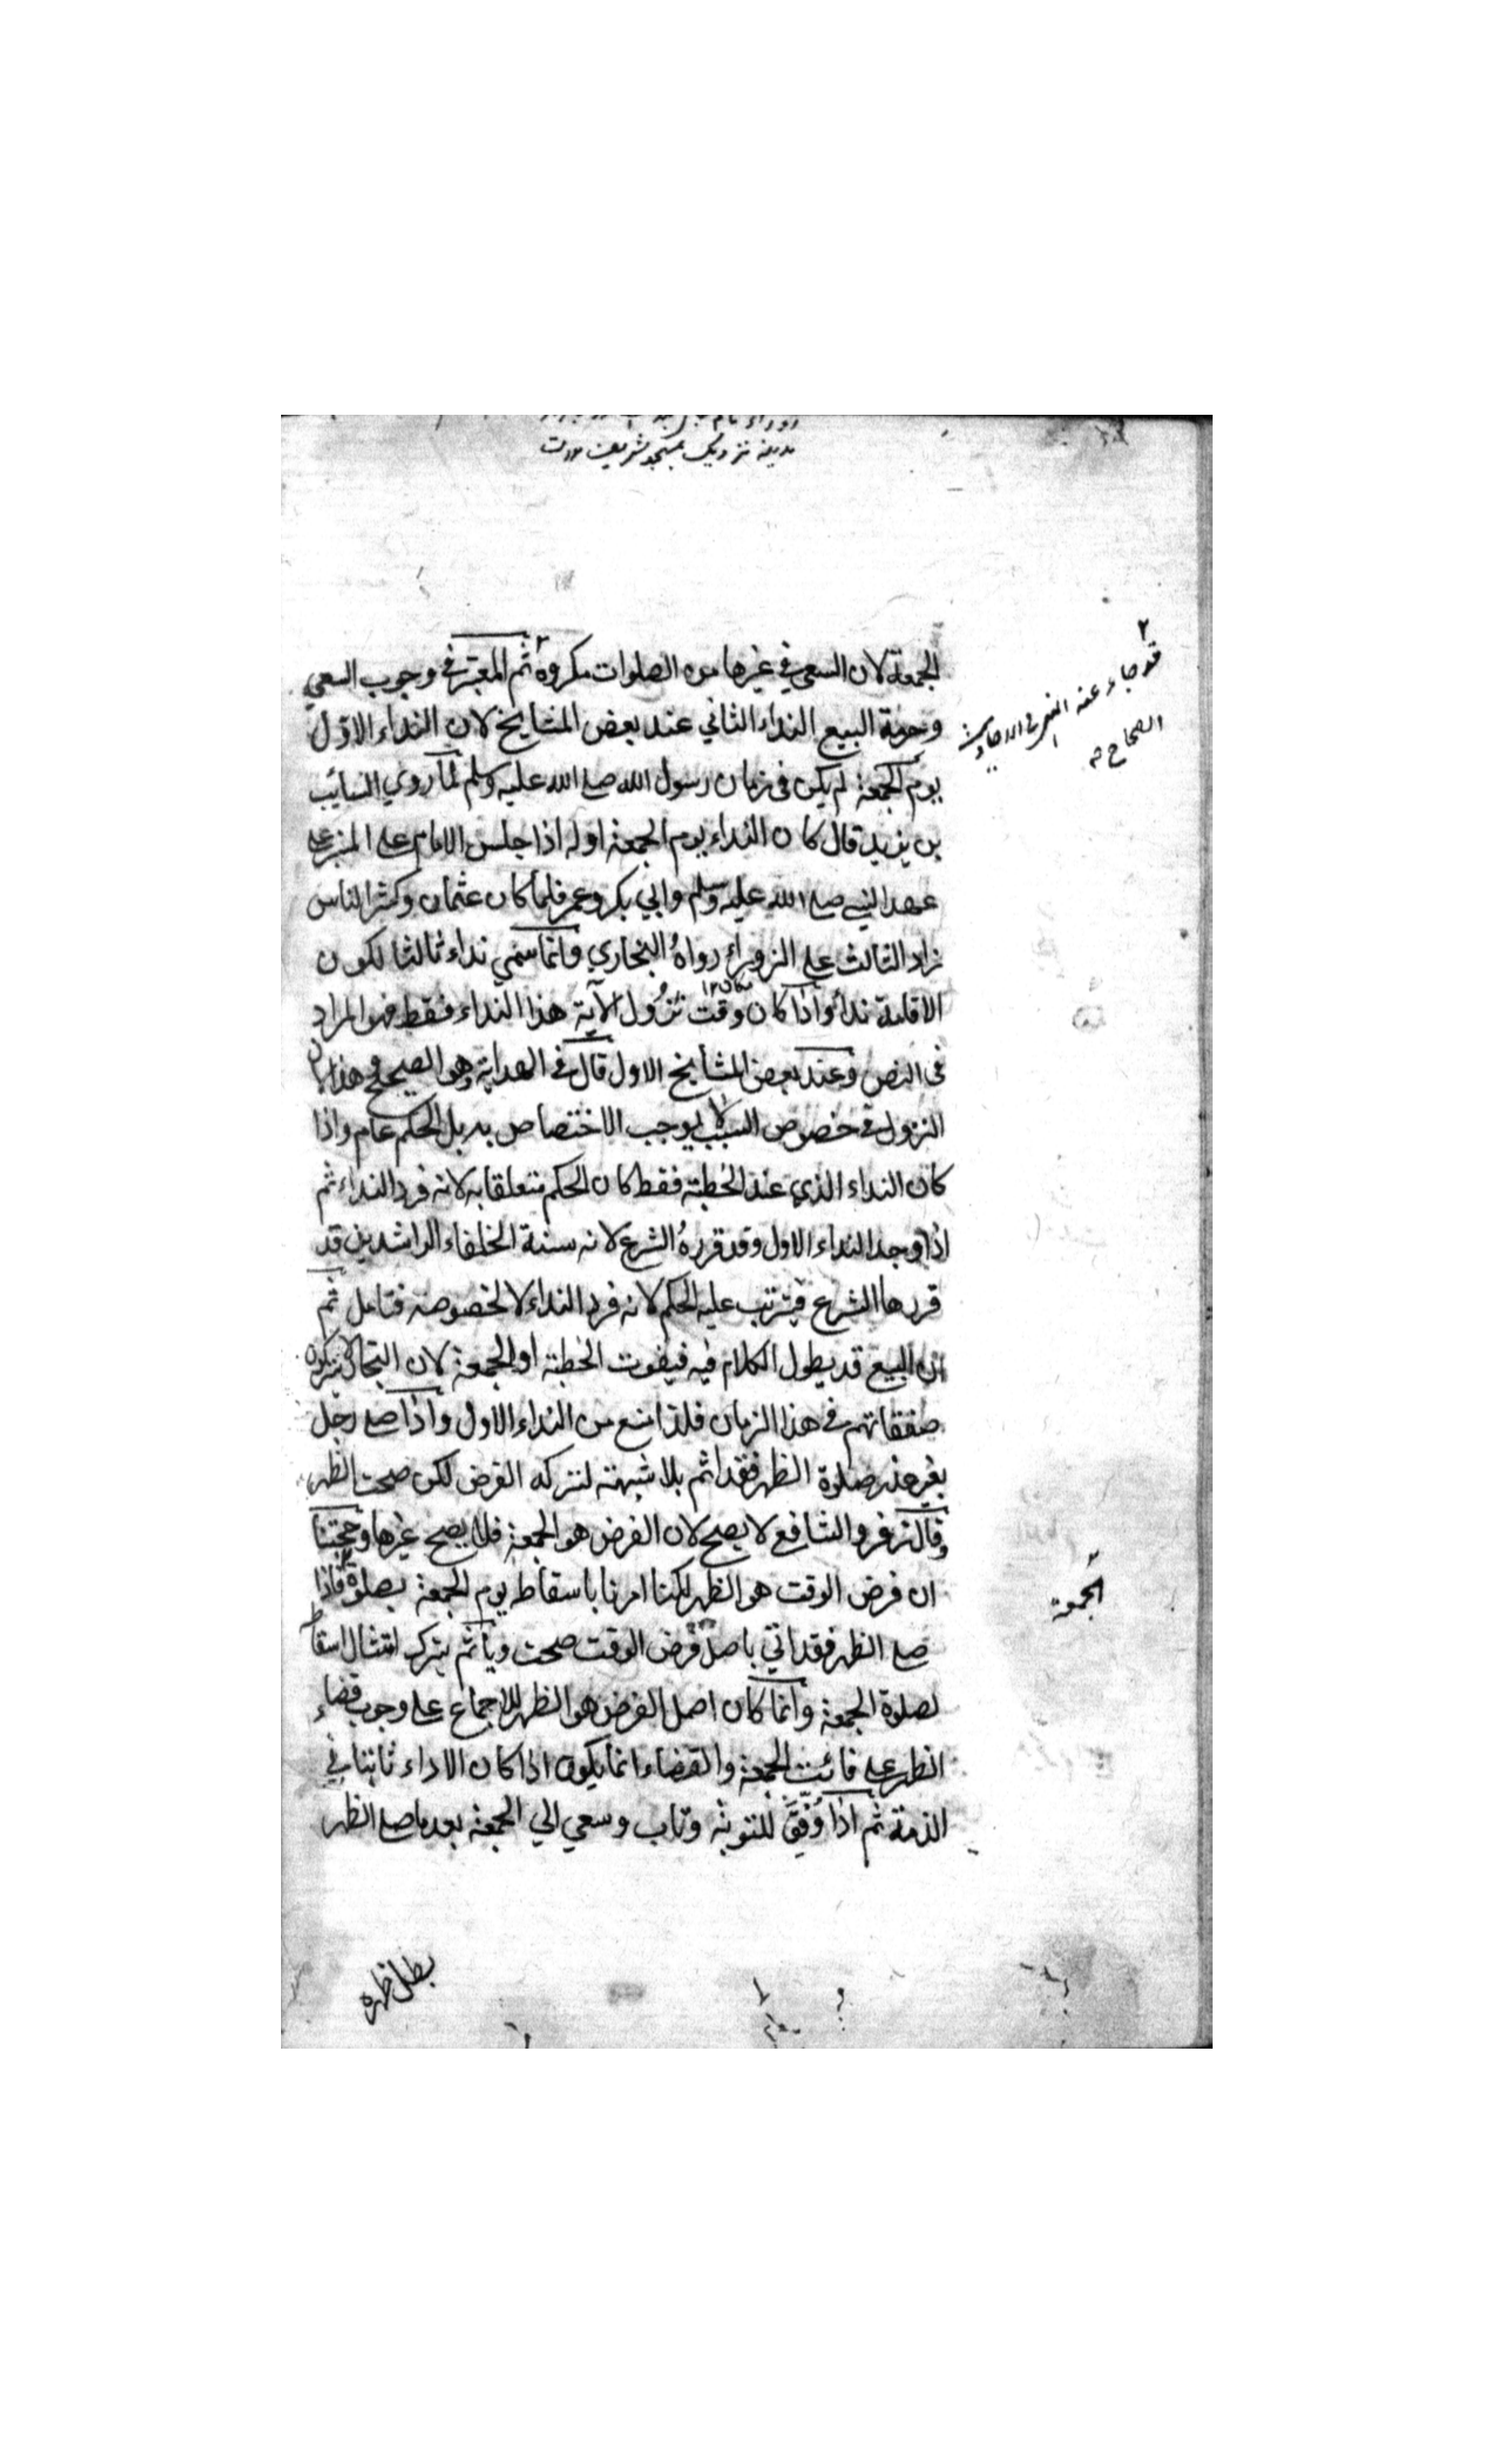 مدينه نزديك بمسجد شريف
الجمعة لان السعي في غيرها من الصلوات مكروه ثم المعتبر في وجوب السعي
وحرمة البيع النداء الثاني عند بعض المشايخ لان النداء الاوّل
يوم الجمعة لم يكن في زمان رسول الله صلے الله عليه وسلم لما روي السائب
بن يزيد قال كان النداء يوم الجمعة اوله اذا جلس الامام علے المنبر علے
عهد النبي صلے الله عليه وسلم وابي بكر وعمر فلما كان عثمان وكثر الناس
زاد الثالث علے الزوراء رواهُ البخاري وانما سمي نداء ثالثا لكون
الاقامة نداء واذا كان وقت نزُول الآية هذا النداء فقط فهو المراد
في النص وعند بعض المشايخ الاول قال في الهداية وهو الصحيح وهذا لان
النزول في خصوص السبب لا يوجب الاختصاص به بل الحكم عام واذا
كان النداء الذي عند الخطبة فقط كان الحكم متعلقا به لانه فرد النداء ثم
اذا وجد النداء الاول وقد قررهُ الشرع لانه سنة الخلفاء الراشدين قد
قررها الشرع فيترتب عليه الحكم لانه فرد النداء لا لخصوصه فتامل ثم
ان البيع قد يطول الكلام فيه فيفوت الخطبة او الجمعة لان التجار
صفقاتهم في هذا الزمان فلذا منع من النداء الاول واذا صلے رجل
بغير عذر صلوة الظهر فقد اثم بلا شبهة لتركه الفرض لكن صحت الظهر
وقال زفر والشافعي لا يصح لان الفرض هو الجمعة فلا يصح غيرها وحجتنا
ان فرض الوقت هو الظهر لكنا امرنا باسقاطه يوم الجمعة بصلوة فاذا
صلے الظهر فقد اتي باصل فرض الوقت صحت ويأثم بترك امتثال اسقاط
لصلوة الجمعة وانما كان اصل الفرض هو الظهر للاجماع علے وجوب قضاء
الظهر علے فائت الجمعة والقضاء انما يكون اذا كان الاداء ثابتا في
الذمة ثم اذا وُفِّقَ للتوبة وتاب وسعي الي الجمعة بعد ما صلے الظهر
بطل ظهره
٢
قد جاء عنه النهي في الاحاديث
الصحاح
٢
الجمعة